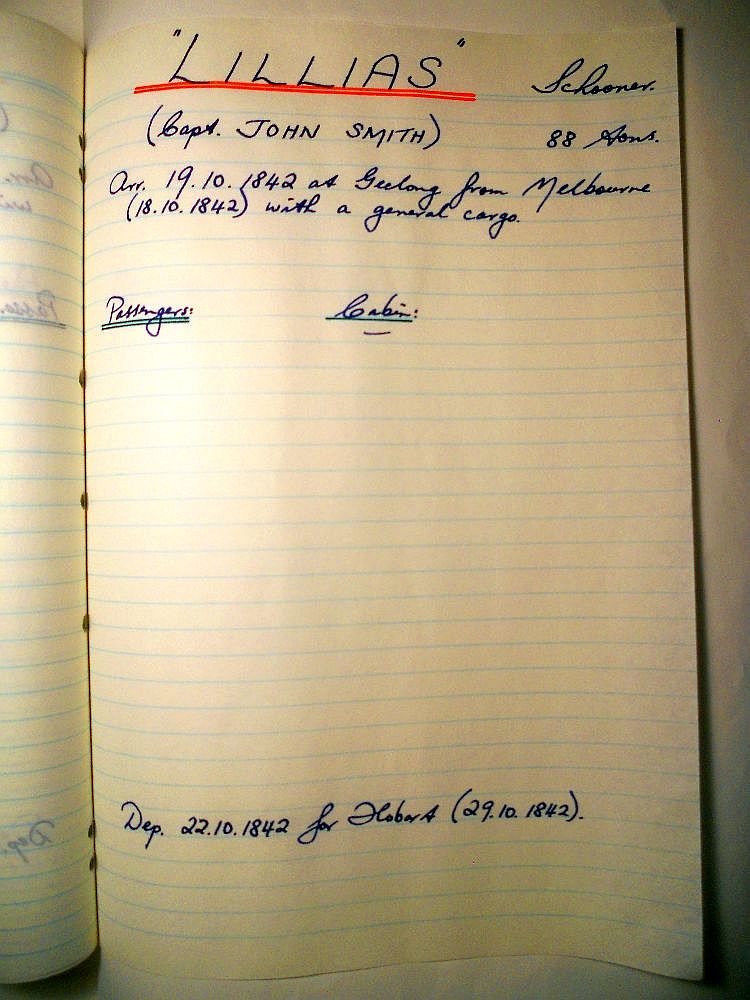 "LILLIAS" Schooner.
(Capt. JOHN SMITH) 88 tons.
Arr. 19.10.1842 at Geelong from Melbourne
(18.10.1842) with a general cargo.
Passengers: Cabin:
—
Dep. 22.10.1842 for Hobart (29.10.1842).